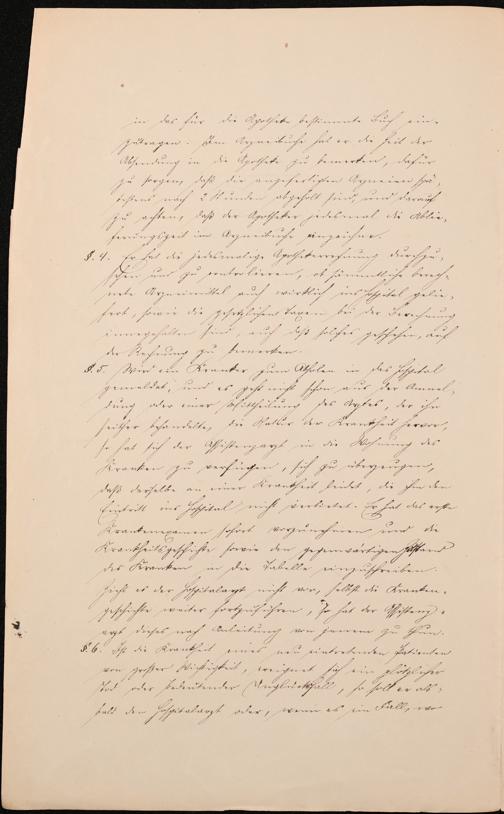 in das für die Apotheke bestimmte Buch ein-
zutragen. Im Arzneibuche hat er die Zeit der
Absendung in die Apotheke zu bemerken, dafür
zu sorgen, daß die angefertigten Arzneien spä-
testens nach 2 Stunden abgeholt sind, und darauf
zu achten, daß der Apotheker jedesmal die Ablie-
ferungszeit im Arzneibuche einzeichne.
§. 4. Er hat die jedesmalige Apothekerrechnung durchzu-
sehen und zu controlieren, ob sämmtliche berech-
nete Arzneimittel auch wirklich ins Hospital gelie-
fert, sowie die gesetzlichen Taxen bei der Berechnung
innegehalten sind, auch daß solches geschehen, auf
der Rechnung zu bemerken.
§. 5. Wird ein Kranker zum Abholen in das Hospital
gemeldet, und es geht nicht schon aus der Anmel-
dung oder einer Mittheilung des Arztes, der ihn
seither behandelte, die Natur der Krankheit hervor,
so hat sich der Assistenzarzt in die Wohnung des
Kranken zu verfügen, sich zu überzeugen,
daß derselbe an einer Krankheit leidet, die ihm den
Eintritt ins Hospital nicht verbietet. Er hat das erste
Krankenexamen sofort vorzunehmen und die
Krankheitsgeschichte sowie den gegenwärtigen Zustand
des Kranken in die Tabelle einzuschreiben.
Zieht es der Hospitalarzt nicht vor, selbst die Kranken-
geschichte weiter fortzuführen, so hat der Assistenz-
arzt dieses nach Anleitung von jenem zu thun.
§. 6. Ist die Krankheit eines neu eintretenden Patienten
von großer Wichtigkeit, ereignet sich ein plötzlicher
Tod oder bedeutender Unglücksfall, so soll er als-
bald den Hospitalarzt oder, wenn es ein Fall, wo